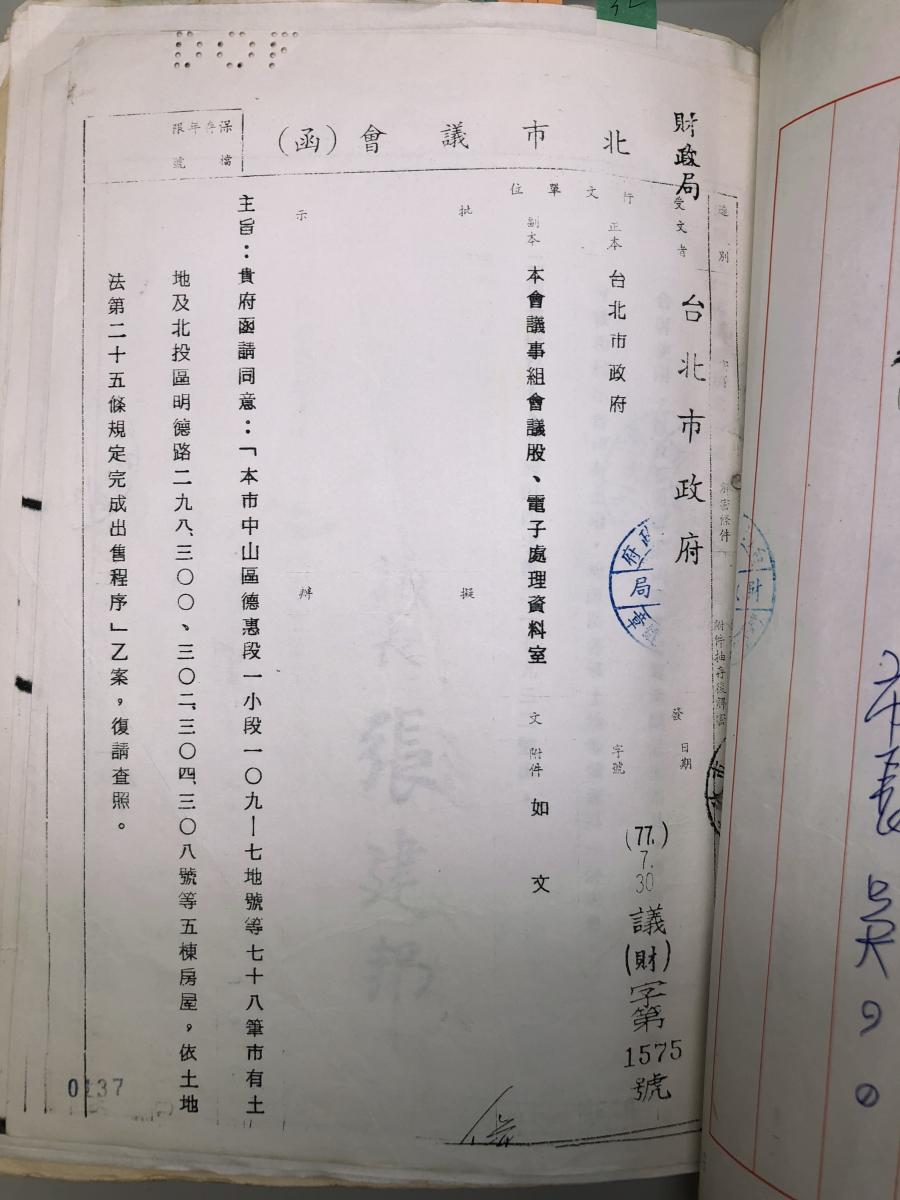 財政局
北市議會（函）
保存年限
檔號
速別
受文者 台北市政府
解密條件
附件抽存後解密
發
日期 (77.)7.30
字號 議(財)字第1575號
行文單位
正本 台北市政府
副本 本會議事組會議股、電子處理資料室
文
附件 如文
批示
擬辦
主旨：貴府函請同意：「本市中山區德惠段一小段一〇九—七地號等七十八筆市有土
地及北投區明德路二九八、三〇〇、三〇二、三〇四、三〇八號等五棟房屋，依土地
法第二十五條規定完成出售程序」乙案，復請查照。
張建邦
府
局
章
財
0137